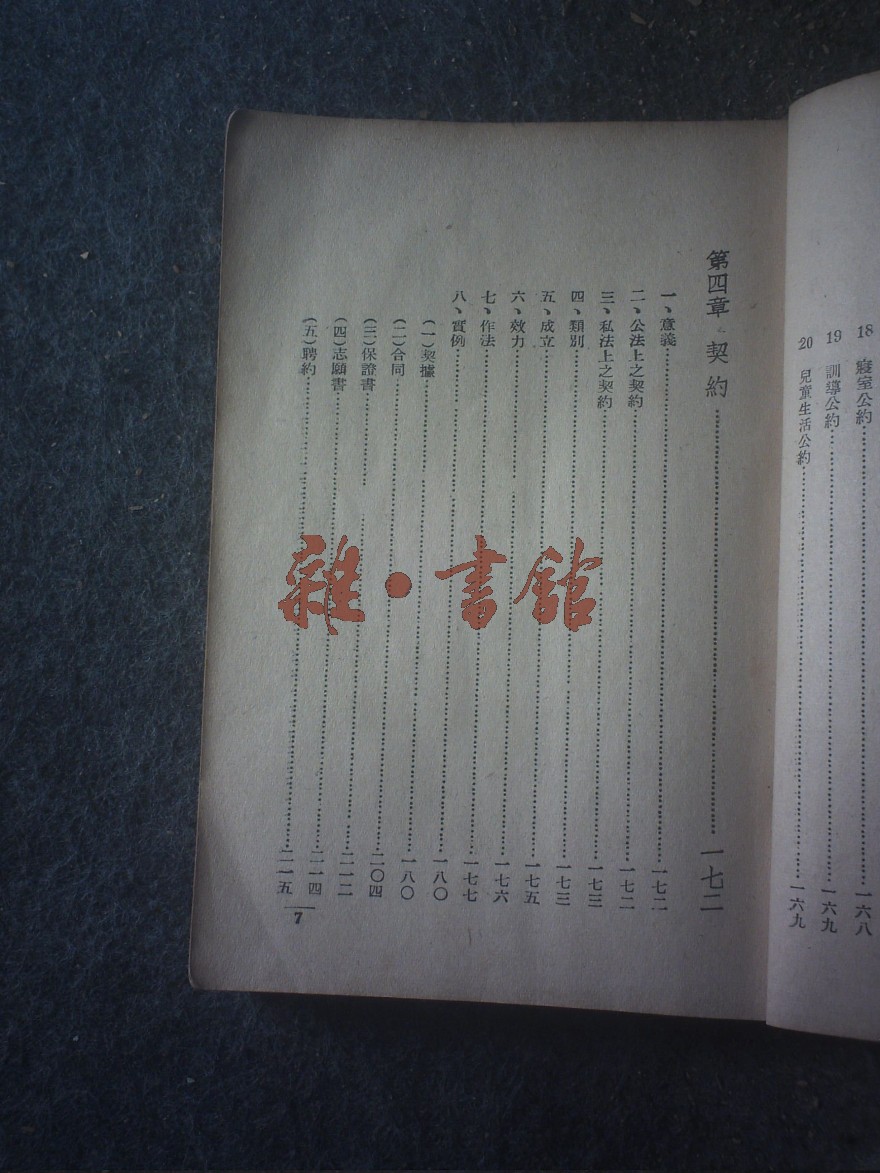 18 寢室公約 一六八
19 訓導公約 一六九
20 兒童生活公約 一六九
第四章 契約 一七二
一、意義 一七二
二、公法上之契約 一七二
三、私法上之契約 一七三
四、類別 一七三
五、成立 一七五
六、效力 一七六
七、作法 一七七
八、實例 一八〇
(一)契據 一八〇
(二)合同 二〇四
(三)保證書 二一二
(四)志願書 二一四
(五)聘約 二一五
7
雜·書館